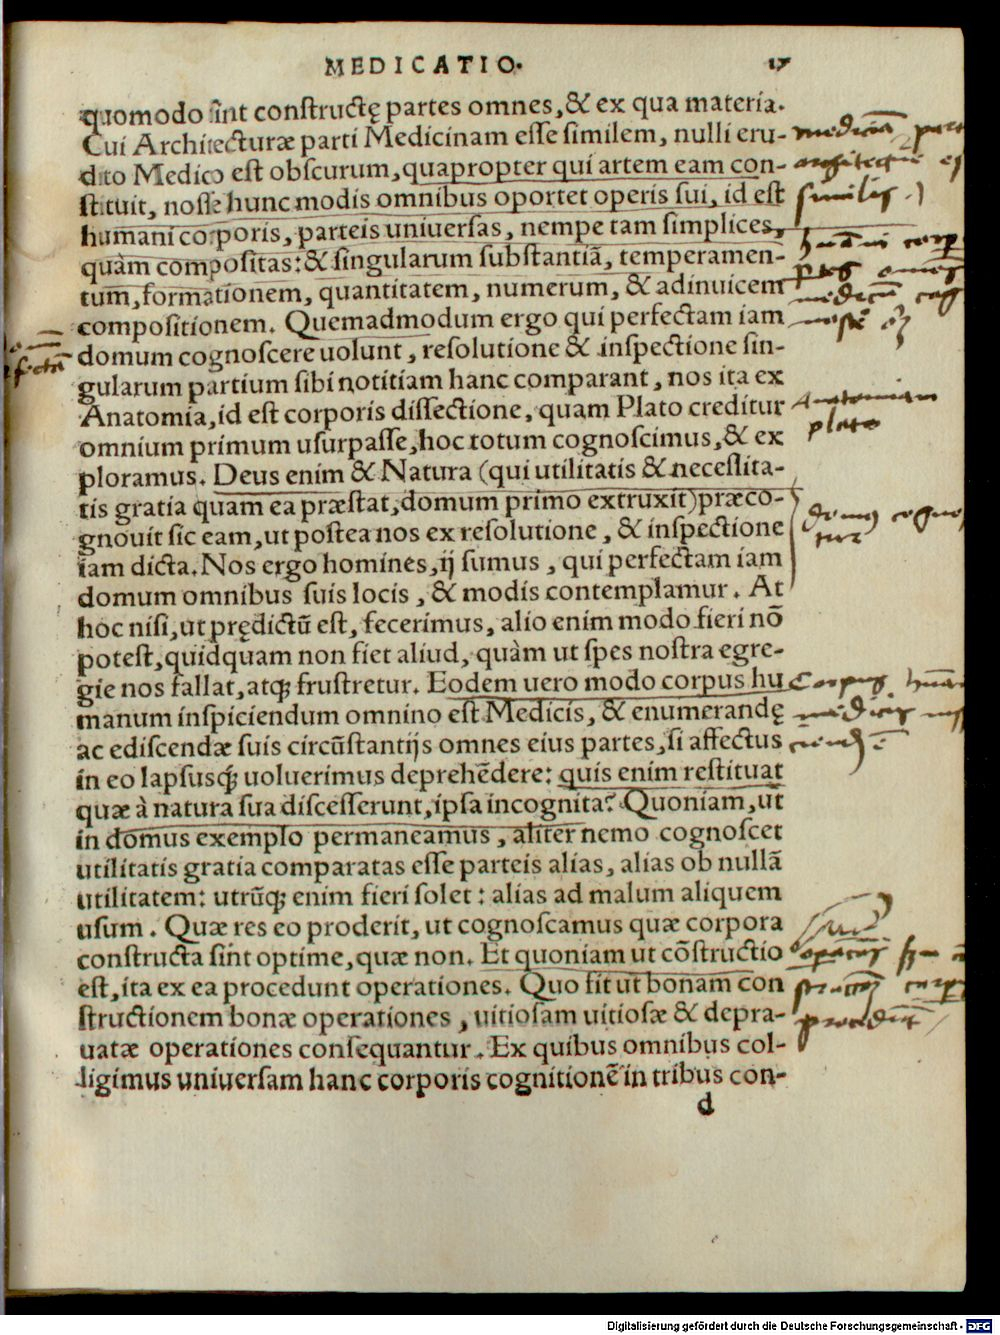 MEDICATIO. 17
quomodo sint constructę partes omnes, & ex qua materia.
Cui Architecturæ parti Medicinam esse similem, nulli eru-
dito Medico est obscurum, quapropter qui artem eam con-
stituit, nosse hunc modis omnibus oportet operis sui, id est
humani corporis, parteis uniuersas, nempe tam simplices,
quàm compositas: & singularum substantiā, temperamen-
tum, formationem, quantitatem, numerum, & adinuicem
compositionem. Quemadmodum ergo qui perfectam iam
domum cognoscere uolunt, resolutione & inspectione sin-
gularum partium sibi notitiam hanc comparant, nos ita ex
Anatomia, id est corporis dissectione, quam Plato creditur
omnium primum usurpasse, hoc totum cognoscimus, & ex
ploramus. Deus enim & Natura (qui utilitatis & necessita-
tis gratia quam ea præstat, domum primo extruxit) præco-
gnouit sic eam, ut postea nos ex resolutione, & inspectione
iam dicta. Nos ergo homines, ij sumus, qui perfectam iam
domum omnibus suis locis, & modis contemplamur. At
hoc nisi, ut prędictū est, fecerimus, alio enim modo fieri nō
potest, quidquam non fiet aliud, quàm ut spes nostra egre-
gie nos fallat, atq; frustretur. Eodem uero modo corpus hu
manum inspiciendum omnino est Medicis, & enumerandę
ac ediscendæ suis circūstantijs omnes eius partes, si affectus
in eo lapsusq; uoluerimus deprehēdere: quis enim restituat
quæ à natura sua discesserunt, ipsa incognita? Quoniam, ut
in domus exemplo permaneamus, aliter nemo cognoscet
utilitatis gratia comparatas esse parteis alias, alias ob nullā
utilitatem: utrūq; enim fieri solet: alias ad malum aliquem
usum. Quæ res eo proderit, ut cognoscamus quæ corpora
constructa sint optime, quæ non. Et quoniam ut cōstructio
est, ita ex ea procedunt operationes. Quo fit ut bonam con
structionem bonæ operationes, uitiosam uitiosæ & depra-
uatæ operationes consequantur. Ex quibus omnibus col-
ligimus uniuersam hanc corporis cognitionē in tribus con-
d
similis
Anatomiam
plato
Corpus
Digitalisierung gefördert durch die Deutsche Forschungsgemeinschaft - DFG